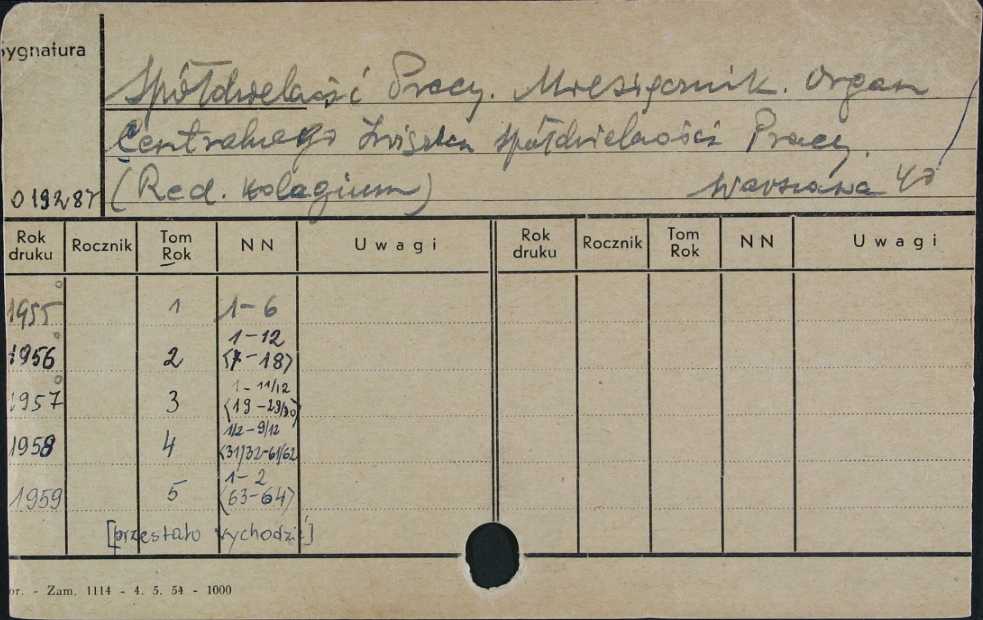 Sygnatura
Spółdzielczość Pracy. Miesięcznik. Organ
Centralnego Związku Spółdzielczości Pracy.
019287 (Red. Kolegium) Warszawa 4º
Rok druku Rocznik Tom Rok NN Uwagi Rok druku Rocznik Tom Rok NN Uwagi
1955 1 1-6
1956 2 1-12 (7-18)
1957 3 1-11/12 (19-29/30)
1958 4 1/2-9/12 (31/32-61/62
1959 5 1-2 (63-64)
[przestało wychodzić]
or. - Zam. 1114 - 4. 5. 54 - 1000